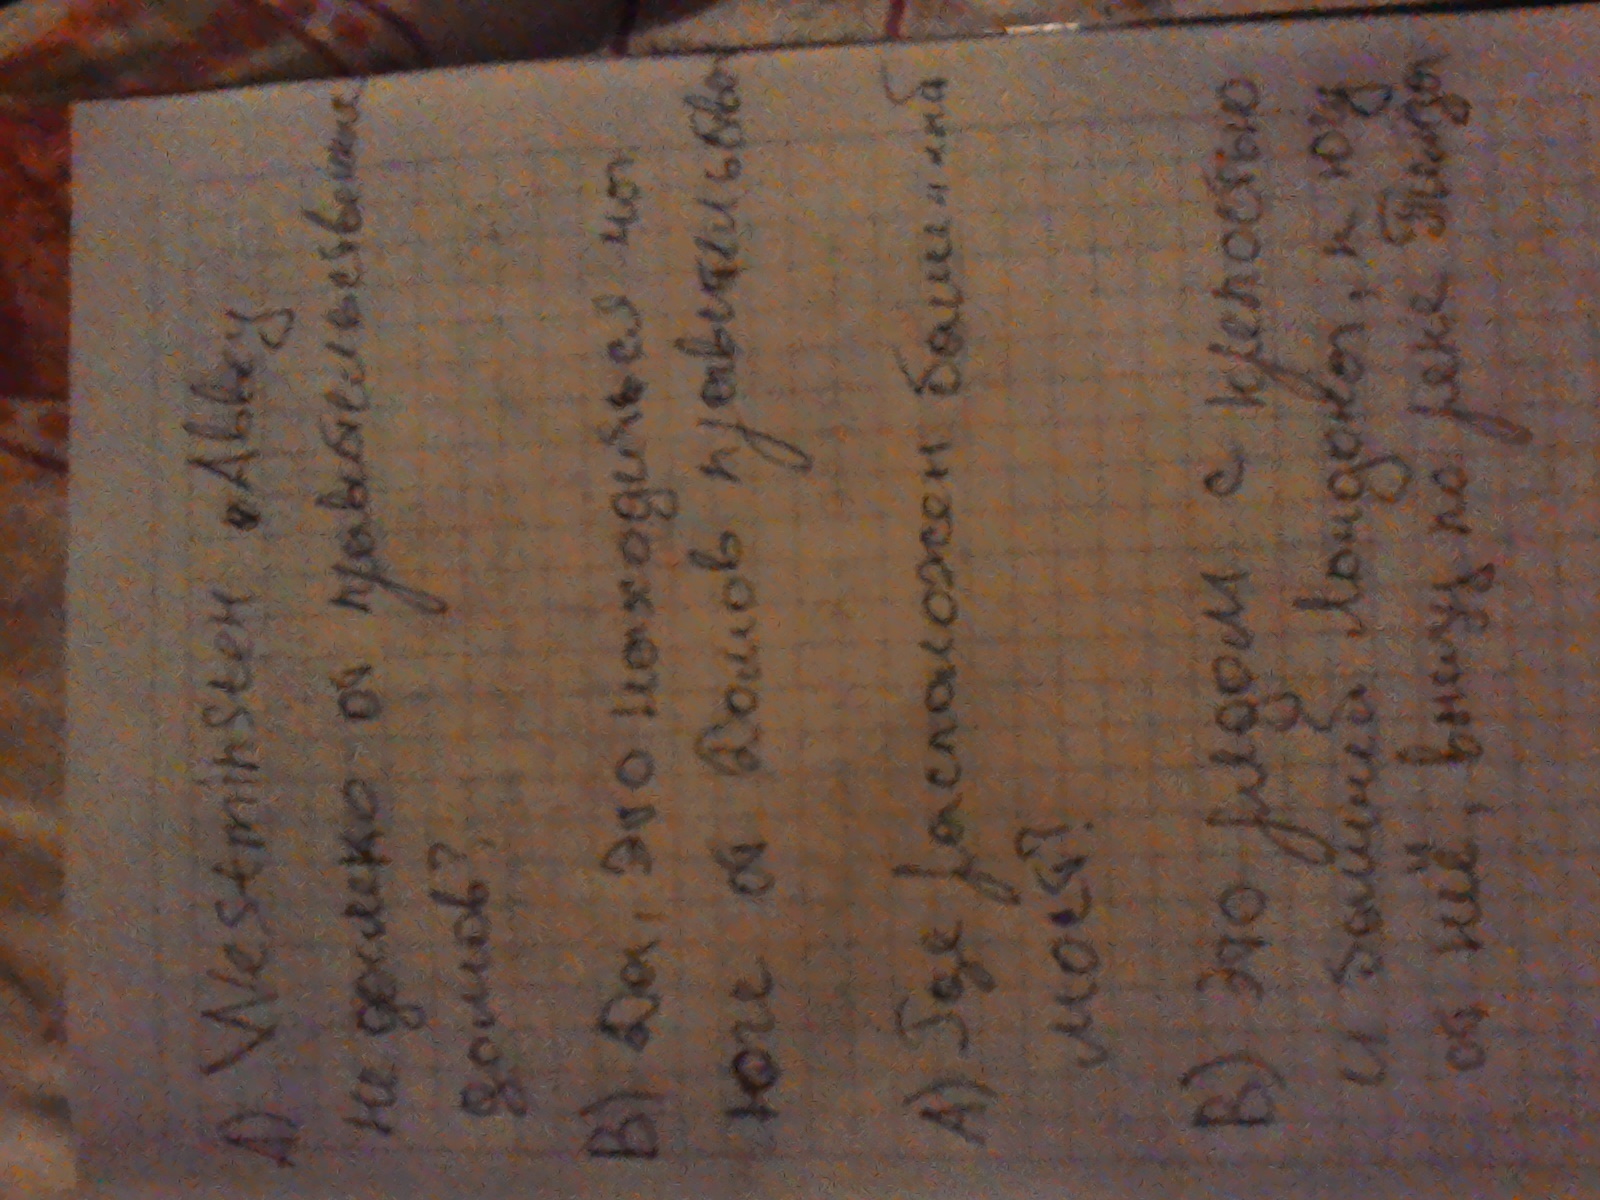 A) Westminsten Abbey
не далеко от правительствение
домов?
B) Да, это находиться на
юге от Домов правительства
A) Где расположен башенный
мост?
B) Это рядом с крепостью
и башней Лондона, к югу
от неё, внизу по реке Темза